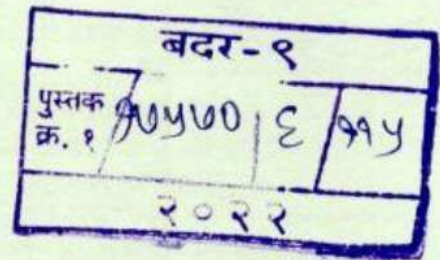 बदर-९
पुस्तक
क्र. १ १७५७० ६ ११५
२०२२